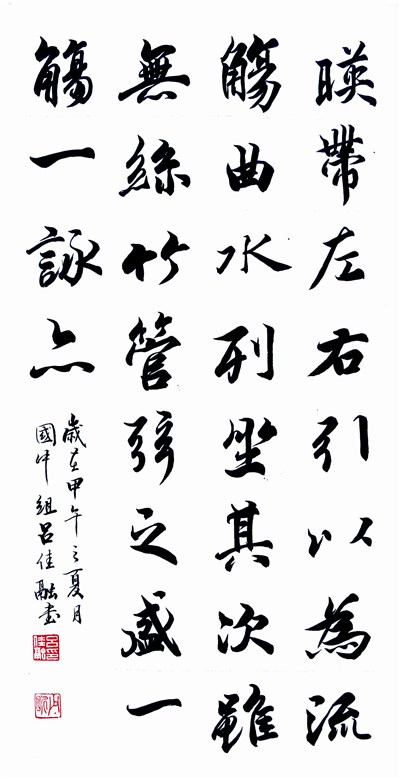 暎帶左右引以為流
觴曲水列坐其次雖
無絲竹管弦之盛一
觴一詠亦
歲在甲午之夏月
國中組呂佳融書